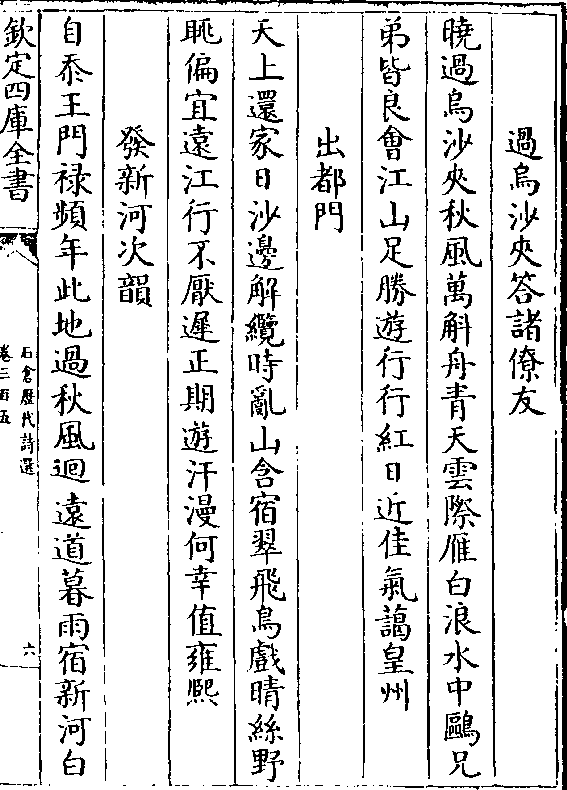 過烏沙夾答諸僚友
曉過烏沙夾秋風萬斛舟青天雲際雁白浪水中鷗兄
弟皆良會江山足勝遊行行紅日近佳氣藹皇州
出都門
天上還家日沙邊解纜時亂山含宿翠飛鳥戲晴絲野
眺偏宜遠江行不厭遲正期遊汗漫何幸值雍熙
發新河次韻
自忝王門祿頻年此地過秋風迴遠道暮雨宿新河白
欽定四庫全書
石倉歷代詩選
卷三百五
六